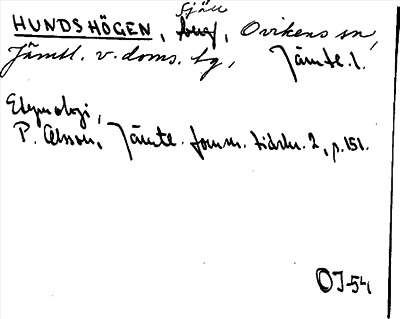 HUNDSHÖGEN, fjäll berg, Ovikens sn,
Jämtl. v. doms. tg, Jämtl. l.
Etymologi,
P. Olsson, Jämtl. fornm. tidskr. 2, p. 151.
OJ-54